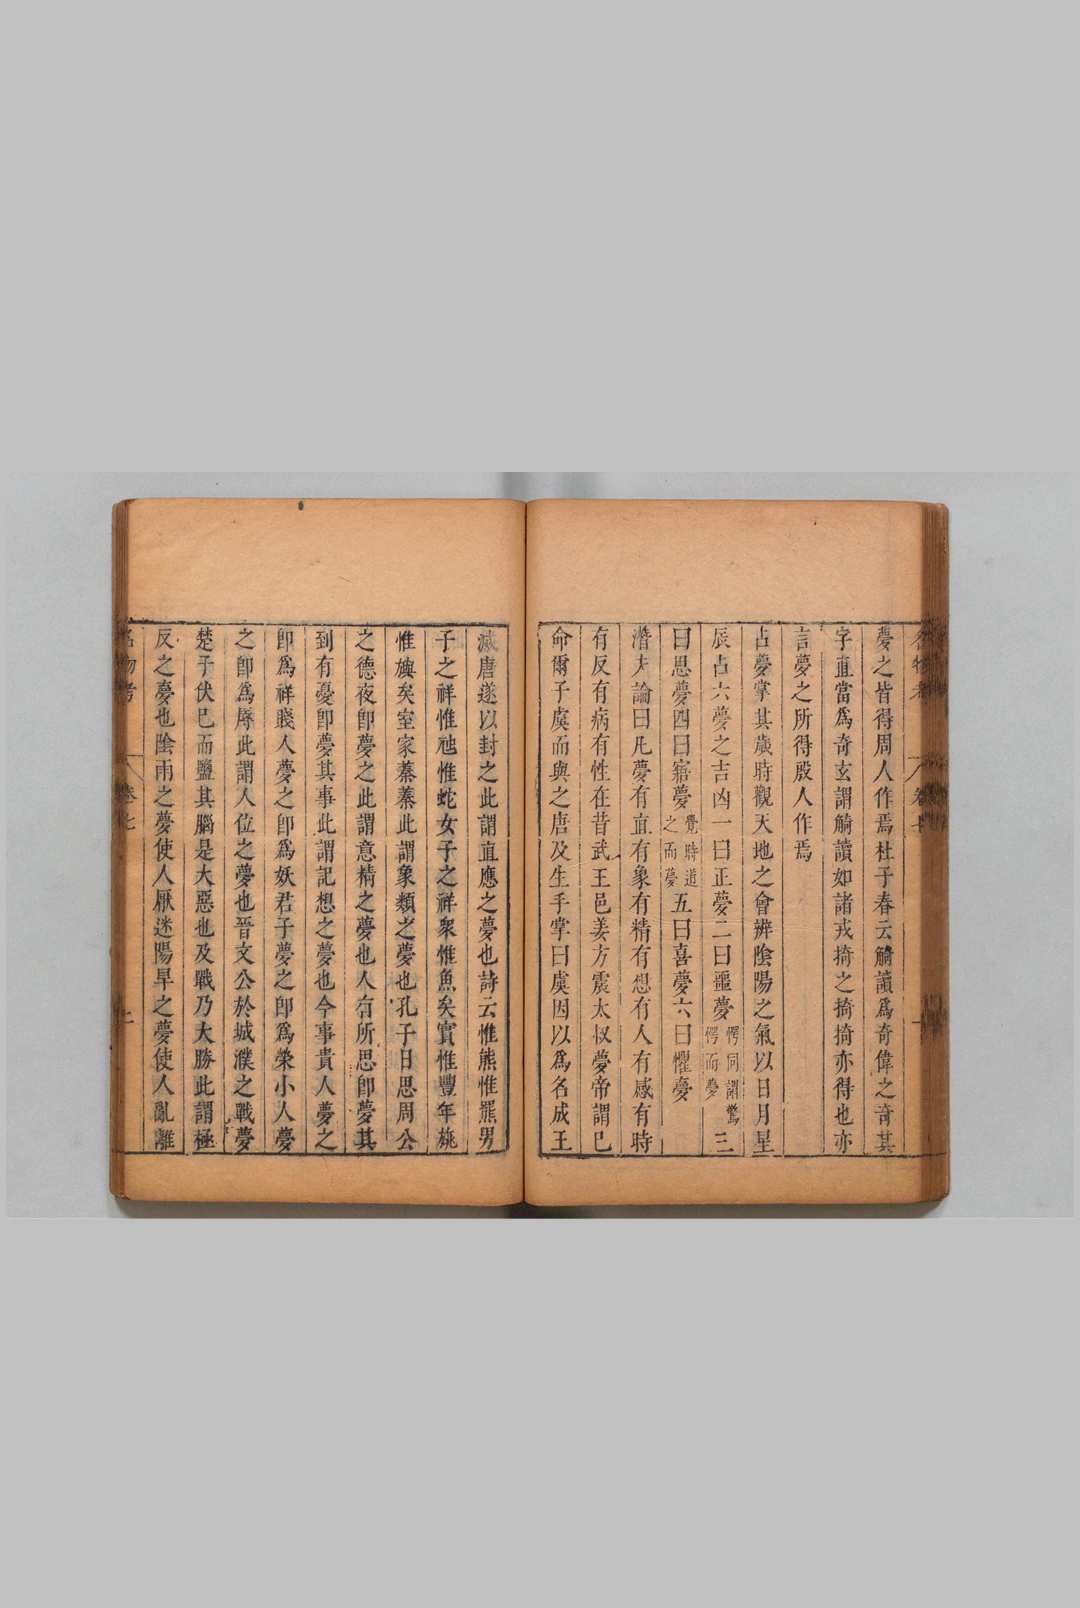 夢之皆得周人作焉杜子春云觭讀爲奇偉之竒其
字直當爲奇玄謂觭讀如諸戎掎之掎掎亦得也亦
言夢之所得殷人作焉
占夢掌其歲時觀天地之會辨陰陽之氣以日月星
辰占六夢之吉凶一曰正夢二曰噩夢愕同謂驚愕而夢三
曰思夢四曰寤夢覺時道之而夢五曰喜夢六曰懼夢
潛夫論曰凡夢有直有象有精有想有人有感有時
有反有病有性在昔武王邑姜方震太叔夢帝謂己
命爾子虞而與之唐及生手掌曰虞因以爲名成王
滅唐遂以封之此謂直應之夢也詩云惟熊惟羆男
子之祥惟虺惟蛇女子之祥衆惟魚矣實惟豐年旐
惟旟矣室家蓁蓁此謂象類之夢也孔子日思周公
之德夜即夢之此謂意精之夢也人有所思即夢其
到有憂即夢其事此謂記想之夢也今事貴人夢之
即爲祥賤人夢之即爲妖君子夢之即爲榮小人夢
之即爲辱此謂人位之夢也晉文公於城濮之戰夢
楚子伏己而盬其腦是大惡也及戰乃大勝此謂極
反之夢也陰雨之夢使人厭迷陽旱之夢使人亂離
名物考
卷七
二